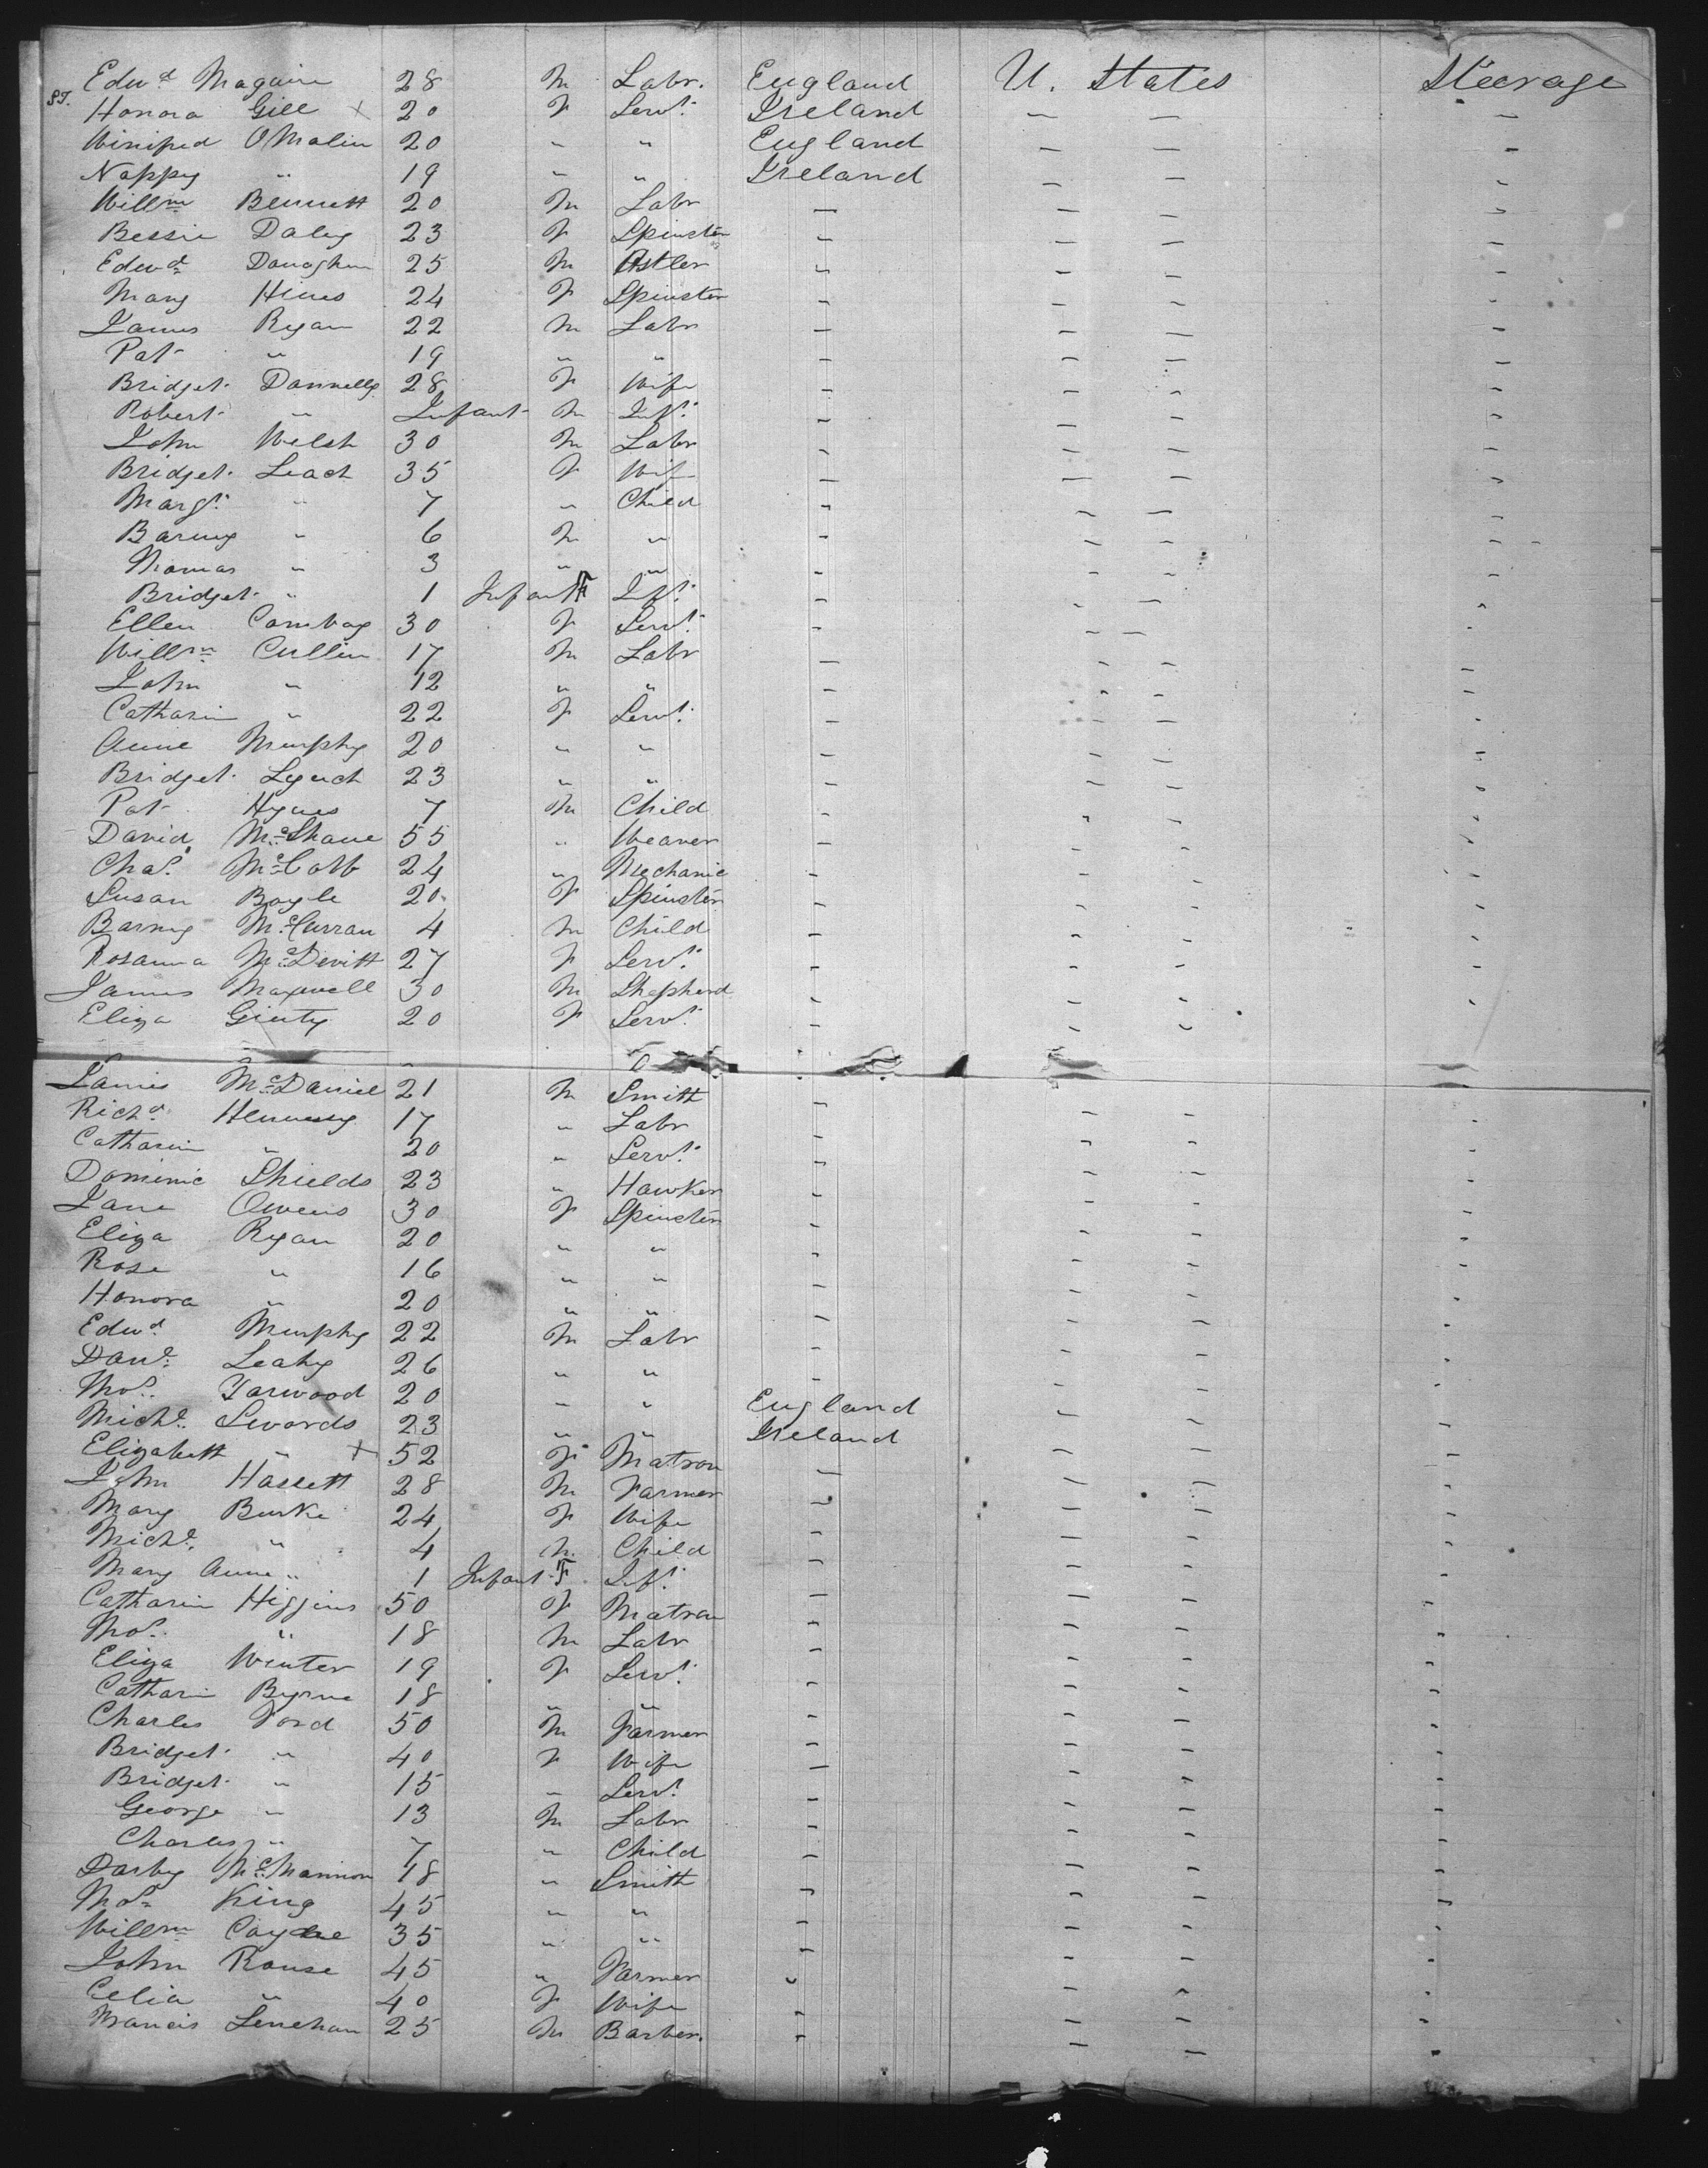 Edwd Maguire 28 M Labr. England U. States Steerage
ST. Honora Gill x 20 F Servt. Ireland — — —
Winifred OMalin 20 " " England — — —
Nappy " 19 " " Ireland — — —
Willm Bennett 20 M Labr — — — —
Bessie Daley 23 F Spinster " — — —
Edwd Donaghue 25 M Ostler " — — —
Mary Hines 24 F Spinster — — — —
James Ryan 22 M Labr — — — —
Pat " 19 " " — — — —
Bridget Donnelly 28 F Wife — — — —
Robert " Infant M Inft. — — — —
John Welsh 30 M Labr — — — —
Bridget Leach 35 F Wife — — — —
Margt. " 7 " Child — — — —
Barney " 6 M " — — — —
Thomas " 3 " " — — — —
Bridget " 1 Infant F Inft. — — — —
Ellen Conway 30 F Servt. — — — —
Willm Cullin 17 M Labr — — — —
John " 12 " " — — — —
Catharin " 22 F Servt. — — — —
Anne Murphy 20 " " — — — —
Bridget Lynch 23 " " — — — —
Pat Hynes 7 M Child — — — —
David McShane 55 " Weaver — — — —
Chas. McColb 24 " Mechanic — — — —
Susan Boyle 20 F Spinster — — — —
Barney McCurran 4 M Child — — — —
Rosanna McDevitt 27 F Servt. — — — —
James Maxwell 30 M Shepherd — — — —
Eliza Ginty 20 F Servt. — — — —
James McDaniel 21 M Smith — — — —
Richd Hennesy 17 " Labr — — — —
Catharin " 20 " Servt. — — — —
Dominic Shields 23 " Hawker — — — —
Jane Owens 30 F Spinster — — — —
Eliza Ryan 20 " " — — — —
Rose " 16 " " — — — —
Honora " 20 " " — — — —
Edwd Murphy 22 M Labr — — — —
Danl. Leahy 26 " " — — — —
Thos. Yarwood 20 " " England — — —
Michl. Swords 23 " " Ireland — — —
Elizabeth " x 52 F Matron — — — —
John Hassett 28 M Farmer — — — —
Mary Burke 24 F Wife — — — —
Michl. " 4 M Child — — — —
Mary Anne " 1 Infant F Inft. — — — —
Catharin Higgins 50 F Matron — — — —
Thos. " 18 M Labr — — — —
Eliza Winter 19 F Servt. — — — —
Catharin Byrne 18 " " — — — —
Charles Ford 50 M Farmer — — — —
Bridget " 40 F Wife — — — —
Bridget " 15 " Servt. — — — —
George " 13 M Labr — — — —
Charles " 7 " Child — — — —
Darby McMannon 18 " Smith — — — —
Thos King 45 " " — — — —
Willm 35 " " — — — —
John Rouse 45 " Farmer — — — —
Celia " 40 F Wife — — — —
Francis Lenehan 25 M Barber. — — — —